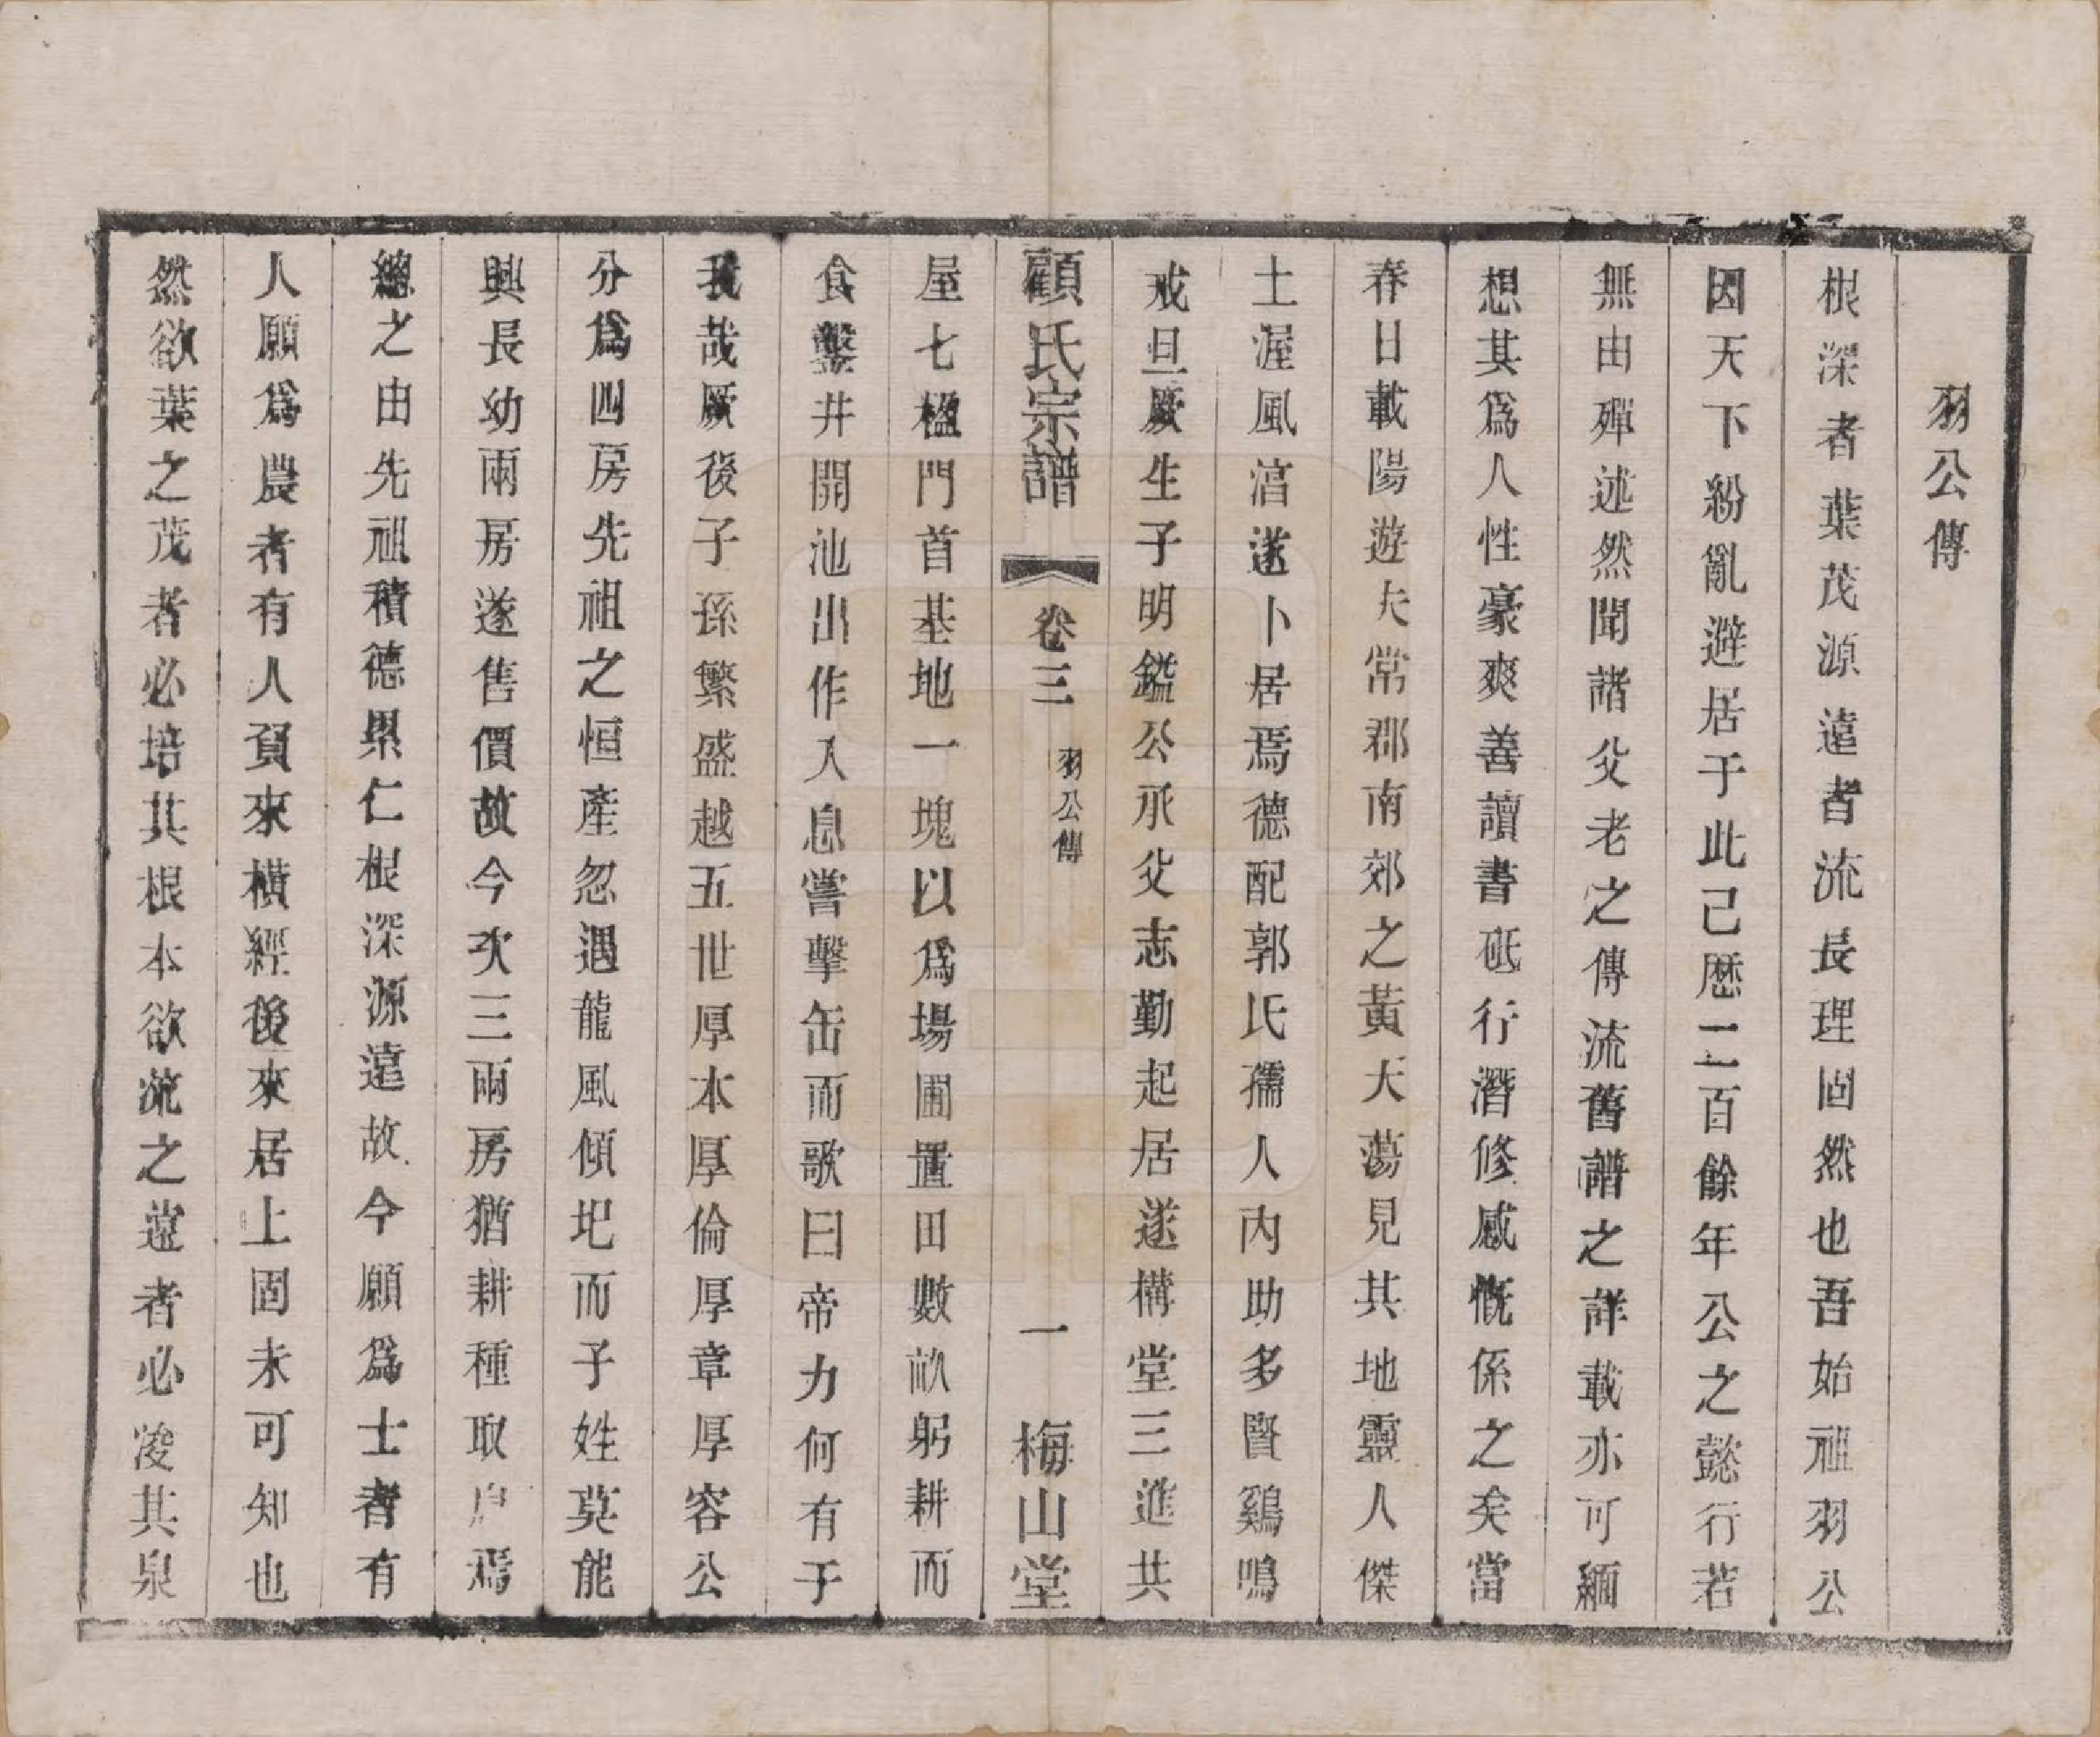 羽公傳
根深者葉茂源遠者流長理固然也吾始祖羽公
因天下紛亂避居于此己歴二百餘年公之懿行若
無由殫述然聞諸父老之傳流舊譜之詳載亦可緬
想其爲人性豪爽善讀書砥行潛修感慨係之矣當
春日載陽遊大常郡南郊之黃天蕩見其地靈人傑
土渥風淳遂卜居焉德配郭氏孺人內助多賢鷄鳴
戒旦厥生子明鎰公承父志勤起居遂構堂三進共
顧氏宗譜
卷三
羽公傳
一
梅山堂
屋七楹門首基地一塊以爲場圃置田數畝躬耕而
食鑿井開池出作入息嘗擊缶而歌曰帝力何有于
我哉厥後子孫繁盛越五世厚本厚倫厚章厚容公
分爲四房先祖之恒產忽遇龍風傾圯而子姓莫能
興長幼兩房遂售價故今次三兩房猶耕種取息焉
總之由先祖積德累仁根深源遠故今願爲士者有
人願爲農者有人負來橫經後來居上固未可知也
然欲葉之茂者必培其根本欲流之遠者必浚其泉